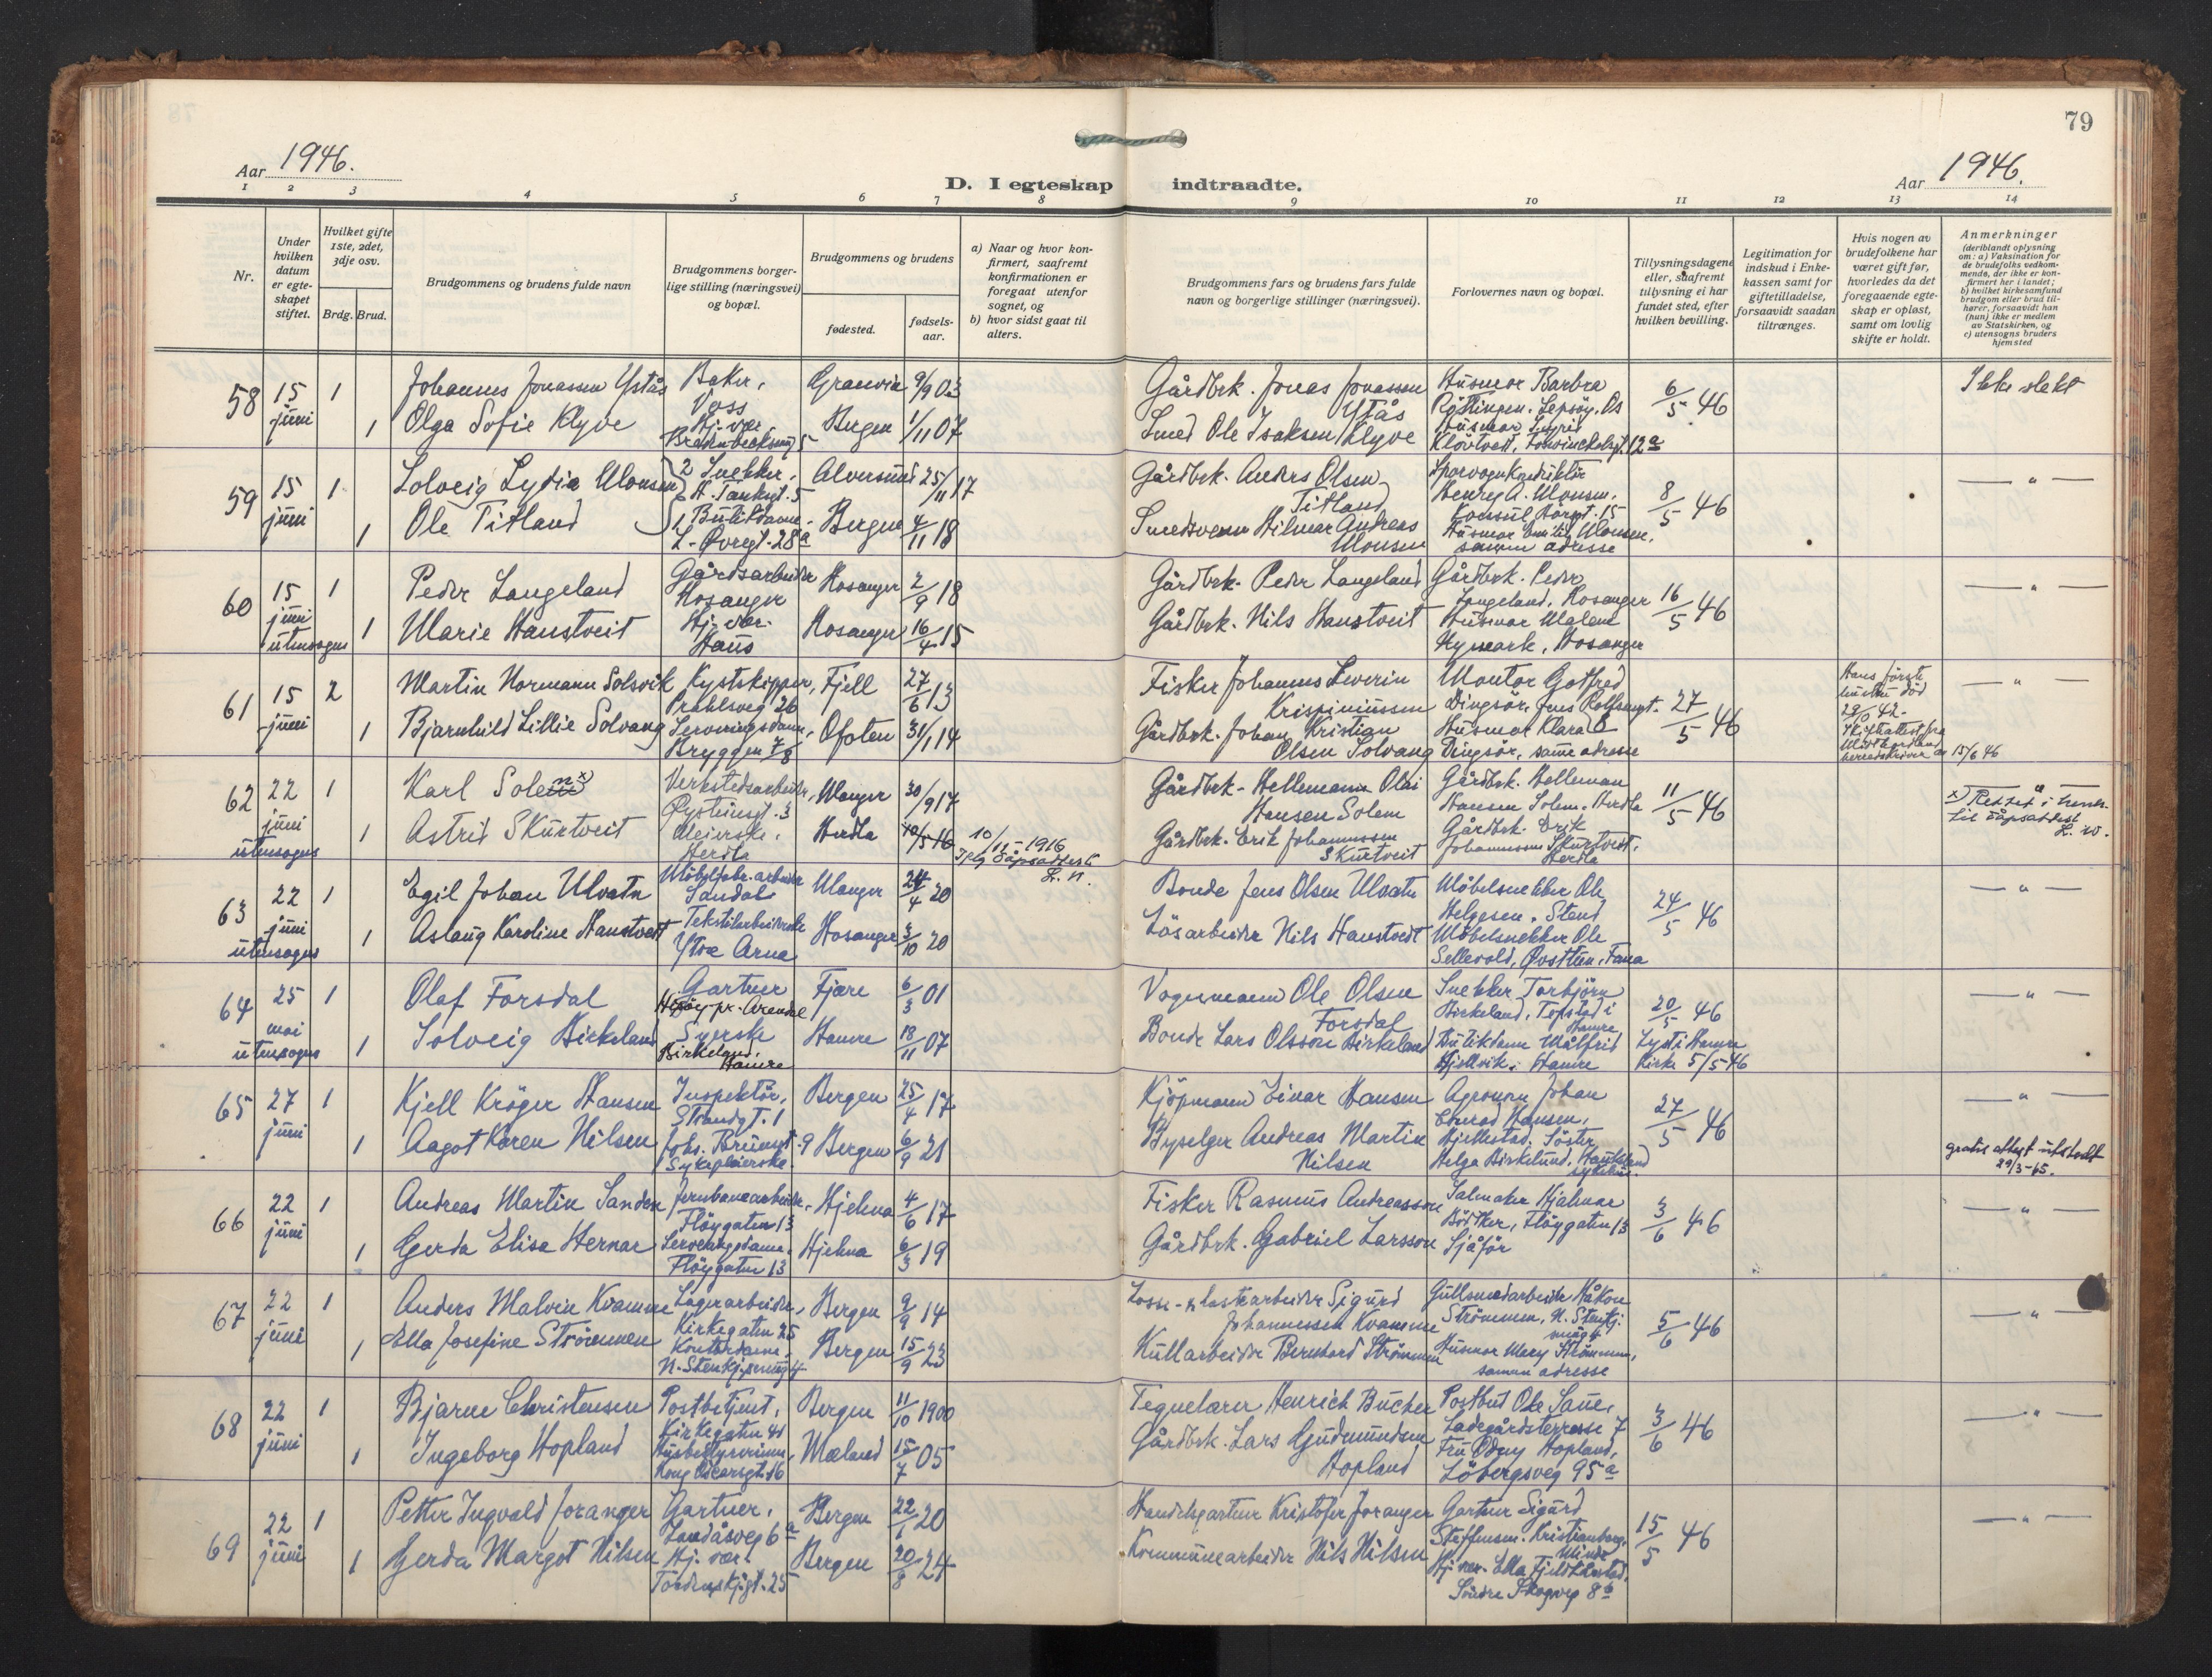 78
79
Aar 1946.
Aar 1946.
D. I egteskap indtraadte.
1 2 3 4 5 6 7 8 9 10 11 12 13 14
Nr.
Under hvilken datum er egteskapet stiftet.
Hvilket gifte 1ste, 2det, 3dje osv.
Brdg. Brud.
Brudgommens og brudens fulde navn
Brudgommens borgerlige stilling (næringsvei) og bopæl.
Brudgommens og brudens
fødested.
fødselsaar.
a) Naar og hvor konfirmert, saafremt konfirmationen er foregaat utenfor sognet, og
b) hvor sidst gaat til alters.
Brudgommens fars og brudens fars fulde navn og borgerlige stillinger (næringsvei).
Forlovernes navn og bopæl.
Tillysningsdagene eller, saafremt tillysning ei har fundet sted, efter hvilken bevilling.
Legitimation for indskud i Enkekassen samt for giftetilladelse, forsaavidt saadan tiltrænges.
Hvis nogen av brudefolkene har været gift før, hvorledes da det foregaaende egteskap er opløst, samt om lovlig skifte er holdt.
Anmerkninger
(deriblandt oplysning om: a) Vaksination for de brudefolks vedkommende, der ikke er konfirmert her i landet;
b) hvilket kirkesamfund brudgom eller brud tilhører, forsaavidt han (hun) ikke er medlem av Statskirken, og
c) utensogns bruders hjemsted
58 15 juni 1 Johannes Jonassen Ystås Baker, Voss Granvin 9/9 03 Gårdbrk. Jonas Jonassen Ystås Husmor Barbra Røttingen. Lepsøy, Os 6/5 46 Ikke slekt
1 Olga Sofie Klyve Hj. vær. Bergen 1/11 07 Smed Ole Isaksen Klyve Husmor
59 15 juni 1 Solveig Lydia Monsen 2 Snekker, Alversund 25/11 17 Gårdbrk. Anders Olsen Titland Sporvognkonduktør Henry A. Monsen, 15 8/5 46 — " —
1 Ole Titland 1 Butikdame L. Øvregt. 28a Bergen 4/11 18 Smedsvenn Hilmar Andreas Monsen Husmor Monsen, samme adresse
60 15 juni utensogns 1 Peder Langeland Gårdsarbeider Hosanger Hosanger 2/9 18 Gårdbrk. Peder Langeland Gårdbrk. Peder Langeland, Hosanger 16/5 46 — " —
1 Marie Haustveit Hj. vær. Haus Hosanger 16/4 15 Gårdbrk. Nils Haustveit Husmor Malene Hosanger
61 15 juni 2 Martin Normann Solsvik Kystskipper, Prahlsveg 26 Fjell 27/6 13 Fisker Johannes Severin Krispiniussen Montør Gotfred Dingsør, Jens Rolfsengt. 27/5 46 Hans første hustru død 29/10 42. — " —
1 Bjarnhild Lillie Solvang Serveringsdame, Bryggen 7/8 Ofoten 31/1 14 Gårdbrk. Johan Kristian Olsen Solvang Husmor Klara Dingsør, samme adresse 15/6 46
62 22 juni utensogns 1 Karl Solem x) Verkstedsarbeider, Øysteinsgt. 3 Manger 30/9 17 Gårdbrk. Hellemann Olai Hansen Solem Gårdbrk. Helleman Hansen Solem. Herdla 11/5 46 x) Rettet i henh. til dåpsattest
1 Astrid Skurtveit Meierske, Herdla Herdla 10/5 16 10/12-1916 Ifg. dåpsattest Gårdbrk. Erik Johannessen Skurtveit Gårdbrk. Erik Johannessen Skurtveit, Herdla
63 22 juni utensogns 1 Egil Johan Mvatn Møbelfabr. arbeider Sandal Manger 24/4 20 Bonde Jens Olsen Mvatn Møbelsnekker Ole Helgesen. Stend 24/5 46 — " —
1 Aslaug Karoline Haustvedt Tekstilarbeiderske Ytre Arna Hosanger 3/10 20 Løsarbeider Nils Haustvedt Møbelsnekker Ole Sellevold, Øvsttun, Fana
64 25 mai utensogns 1 Olaf Forsdal Gartner Hisøy pr. Arendal Fjære 6/3 01 Vognmann Ole Olsen Forsdal Snekker Torbjørn Birkeland, Tofstad i Hamre 20/5 46 — " —
1 Solveig Birkeland Syerske Birkeland, Hamre Hamre 18/11 07 Bonde Lars Olsson Birkeland Butikdame Målfrid Hjellvik, Hamre Lyst i Hamre Kirke 5/5-46
65 27 juni 1 Kjell Krøger Hansen Inspektør, Strandgt. 1 Bergen 25/4 17 Kjøpmann Einar Hansen Agronom Johan Hansen, Hjellestad. 27/5 46 — " —
1 Aagot Karen Nilsen Johs. Brunsgt. 9 Sykepleierske Bergen 6/9 21 Byselger Andreas Martin Nilsen Søster Helga Birkelund, Haukeland sykehus. gratis attest utstedt 29/3-65.
66 22 juni 1 Andreas Martin Sanden Jernbanearbeider, Fløygaten 13 Hjelma 4/6 17 Fisker Rasmus Andreasson Salmaker Hjalmar Bødtker, Fløygaten 13 3/6 46 — " —
1 Gerda Elise Hernar Serveringsdame, Fløygaten 13 Hjelma 6/3 19 Gårdbrk. Gabriel Larsson Sjåfør
67 22 juni 1 Anders Malvin Kvamme Lagerarbeider, Kirkegaten 25 Bergen 9/9 14 Losse- & lastearbeider Sigurd Johannessen Kvamme Gullsmedarbeider Håkon Strømmen, N. 5/6 46 — " —
1 Ella Josefine Strømmen Kontordame, N. Bergen 15/9 23 Kullarbeider Bernhard Strømmen Husmor Mary Strømmen, samme adresse
68 22 juni 1 Bjarne Christensen Postbetjent, Kirkegaten 41 Bergen 11/10 1900 Tegnelærer Henrich Bucher Postbud Ole Saue, Ladegårdsterrasse 7 3/6 46 — " —
1 Ingeborg Hopland Husbestyrerinne, Kong Oscarsgt. 16 Mæland 15/7 05 Gårdbrk. Lars Gudmundsen Hopland Fru Odny Hopland, Løbergsveg 95a
69 22 juni 1 Petter Ingvald Joranger Gartner, Landåsveg 6a Bergen 22/1 20 Handelsgartner Kristofer Joranger Gartner Sigurd Steffensen. Kristianborg, Minde 15/5 46 — " —
1 Gerda Margot Nilsen Hj. vær. Tordenskj.gt. 25 Bergen 20/8 24 Kommunearbeider Nils Nilsen Hj. vær. Ella Søndre Skogveg 8b